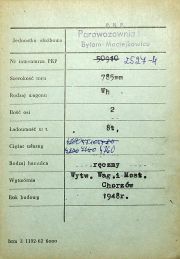 P.K.P.
Jednostka służbowa Parowozownia I kl.
Bytom-Maciejkowice
Nr inwentarza PKP 50910 2527-4
Szerokość toru 785mm
Rodzaj wagonu Wh
Ilość osi 2
Ładowność w t. 8t,
Ciężar własny 4200 4400 4360
Rodzaj hamulca ręczny
Wytwórnia Wytw. Wag.i Most.
Chorzów
Rok budowy 1948r.